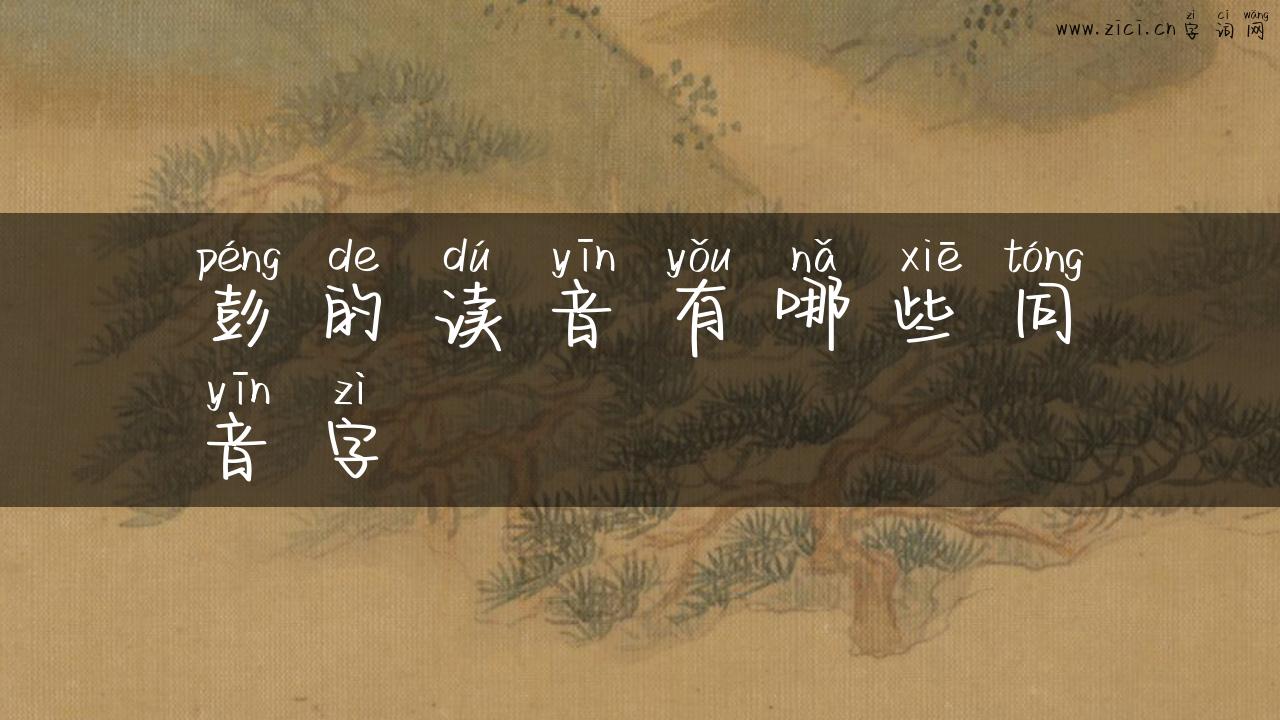 zì cí wǎng
www.zici.cn 字词网
péng de dú yīn yǒu nǎ xiē tóng
彭的读音有哪些同
yīn zì
音字